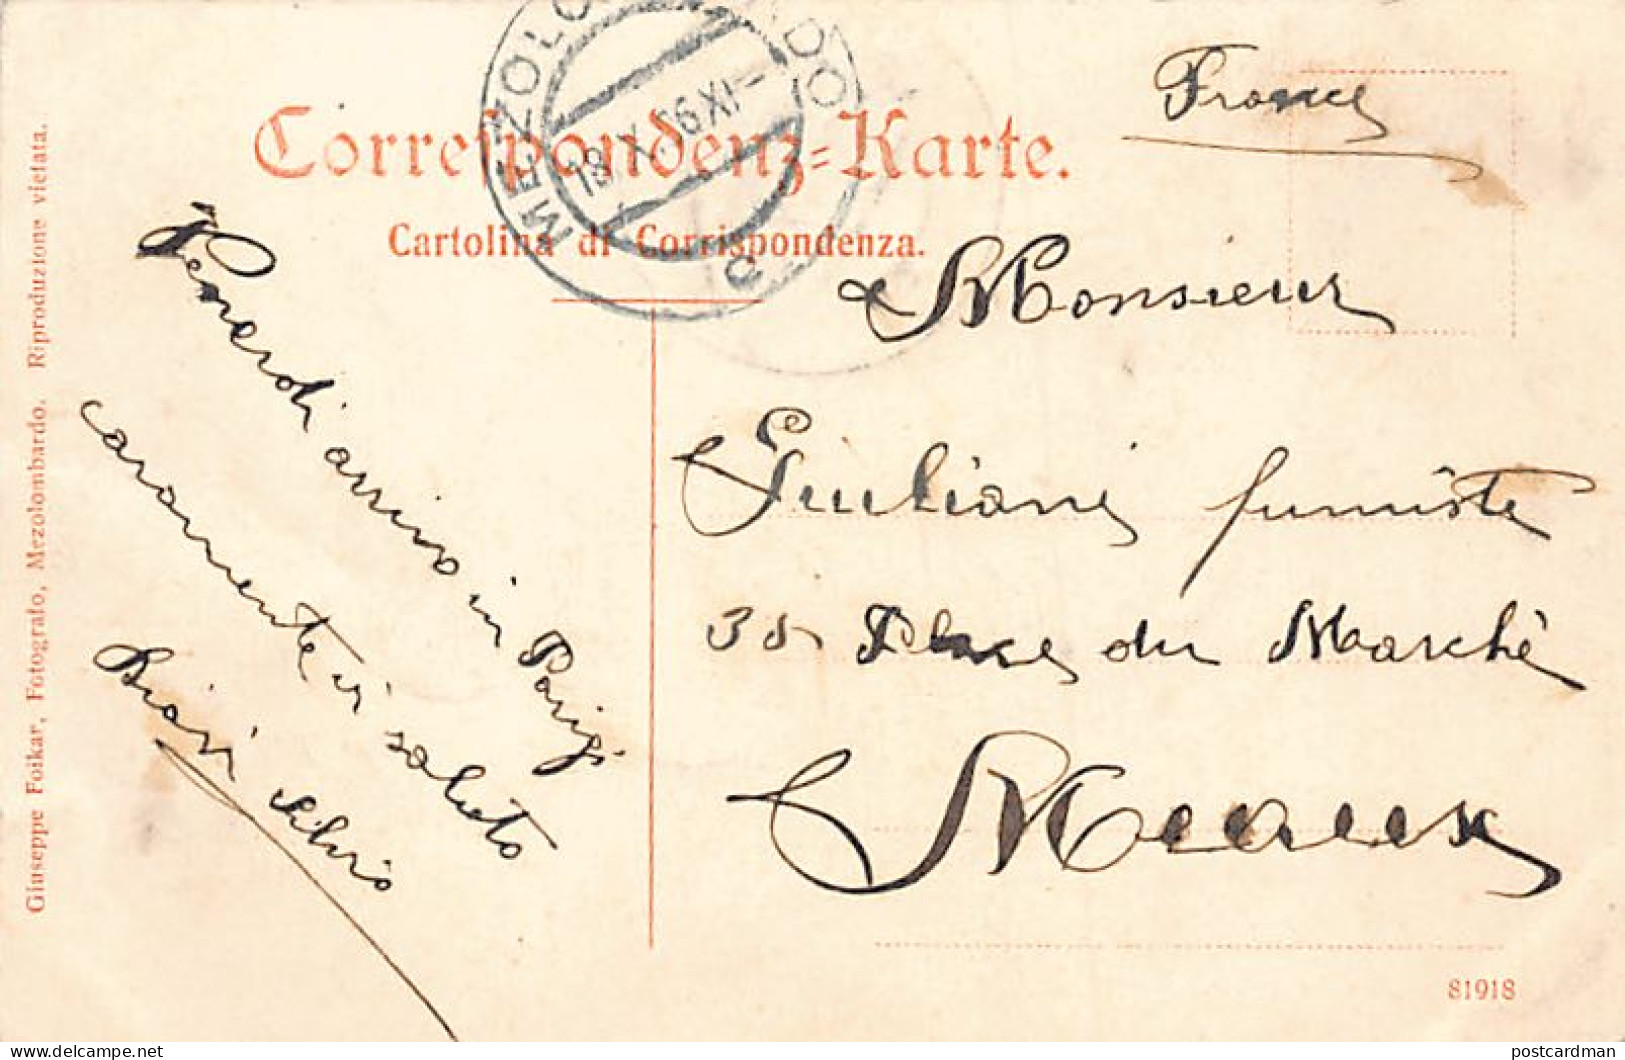 Correspondenz-Karte.
Cartolina di Corrispondenza.
France
Monsieur
Giuliani fumiste
38 Place du Marché
Meaux
Venerdi arrivo in Parigi
caramente vi saluto
Silvio
Giuseppe Foikar, Fotografo, Mezolombardo. Riproduzione vietata.
81918
postcardman